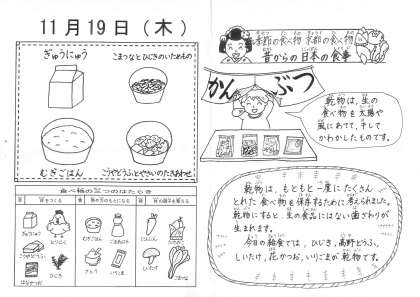 11月19日(木)
ぎゅうにゅう
こまつなとひじきのいためもの
むぎごはん
こうやどうふとやさいのたきあわせ
食べ物の三つのはたらき
季節の食べ物 京都の食べ物
昔からの日本の食事
かんぶつ
乾物は、生の
食べ物を太陽や
風にあてて、干して
かわかしたものです。
乾物は、もともと一度にたくさん
とれた食べ物を保存するために考えられました。
乾物にすると、生の食品にはない歯ざわりが
生まれます。
今日の給食では、ひじき、高野どうふ、
しいたけ、花かつお、いりごまが乾物です。